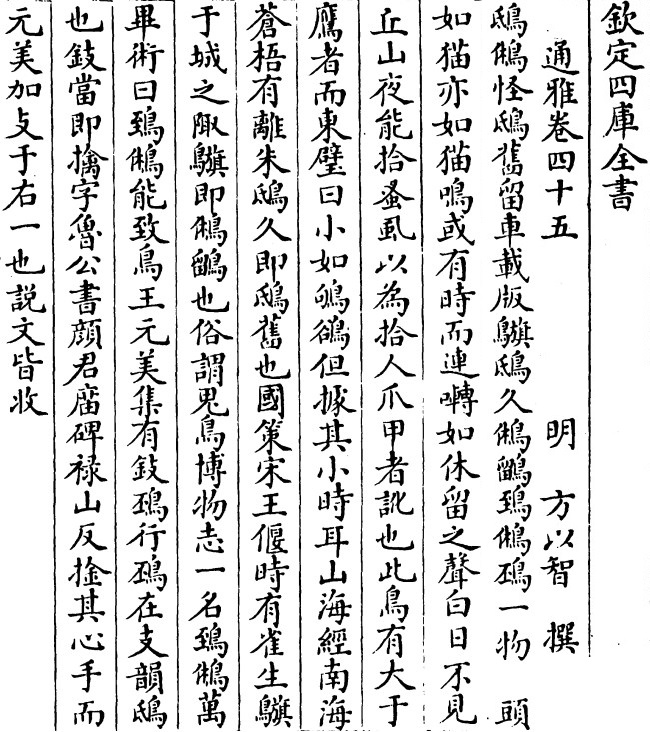 欽定四庫全書
通雅卷四十五 明 方以智 撰
鴟鵂怪鴟舊留車載版鶀鴟久鵂鶹鵄鵂鵶一物 頭
如猫亦如猫鳴或有時而連囀如休留之聲白日不見
丘山夜能拾蚤虱以為拾人爪甲者訛也此鳥有大于
鷹者而東璧曰小如鴝鵒但據其小時耳山海經南海
蒼梧有離朱鴟久即鴟舊也國策宋王偃時有雀生
于城之陬即鵂鶹也俗謂鬼鳥博物志一名鵄鵂萬
畢術曰鵄鵂能致鳥王元美集有鼓行在支韻鴟
也當即擒字魯公書顔君廟碑禄山反捦其心手而
元美加攴于右一也説文皆收